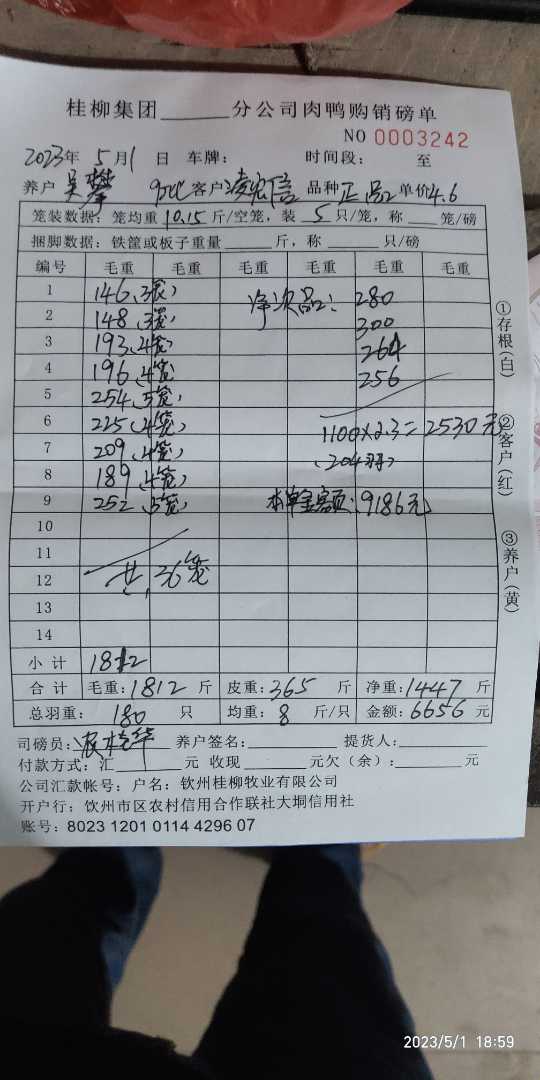 桂柳集团______分公司肉鸭购销磅单
NO 0003242
2023年 5月1日 车牌: 时间段: 至
养户 吴攀 客户 凌宏信 品种 正品 单价4.6
笼装数据: 笼均重 10.15 斤/空笼, 装 5 只/笼, 称 ___ 笼/磅
捆脚数据: 铁筐或板子重量 ____ 斤, 称 ____ 只/磅
编号 毛重 毛重 毛重 毛重 毛重 毛重
1 146(3笼) 净次品: 280
2 148(3笼) 300
3 193(4笼) 264
4 196(4笼) 256
5 254(5笼)
6 225(4笼) 1100×2.3=2530元
7 209(4笼) (204羽)
8 189(4笼)
9 252(5笼) 本单金额:9186元
10
11
12 共36笼
13
14
小计 1812
合计 毛重:1812 斤 皮重:365 斤 净重:1447 斤
总羽重: 180 只 均重: 8 斤/只 金额: 6656 元
司磅员: 养户签名: 提货人:
付款方式: 汇______元 收现______元欠(余): ______元
公司汇款帐号: 户名: 钦州桂柳牧业有限公司
开户行: 钦州市区农村信用合作联社大垌信用社
账号: 8023 1201 0114 4296 07
①存根(白)
②客户(红)
③养户(黄)
2023/5/1 18:59